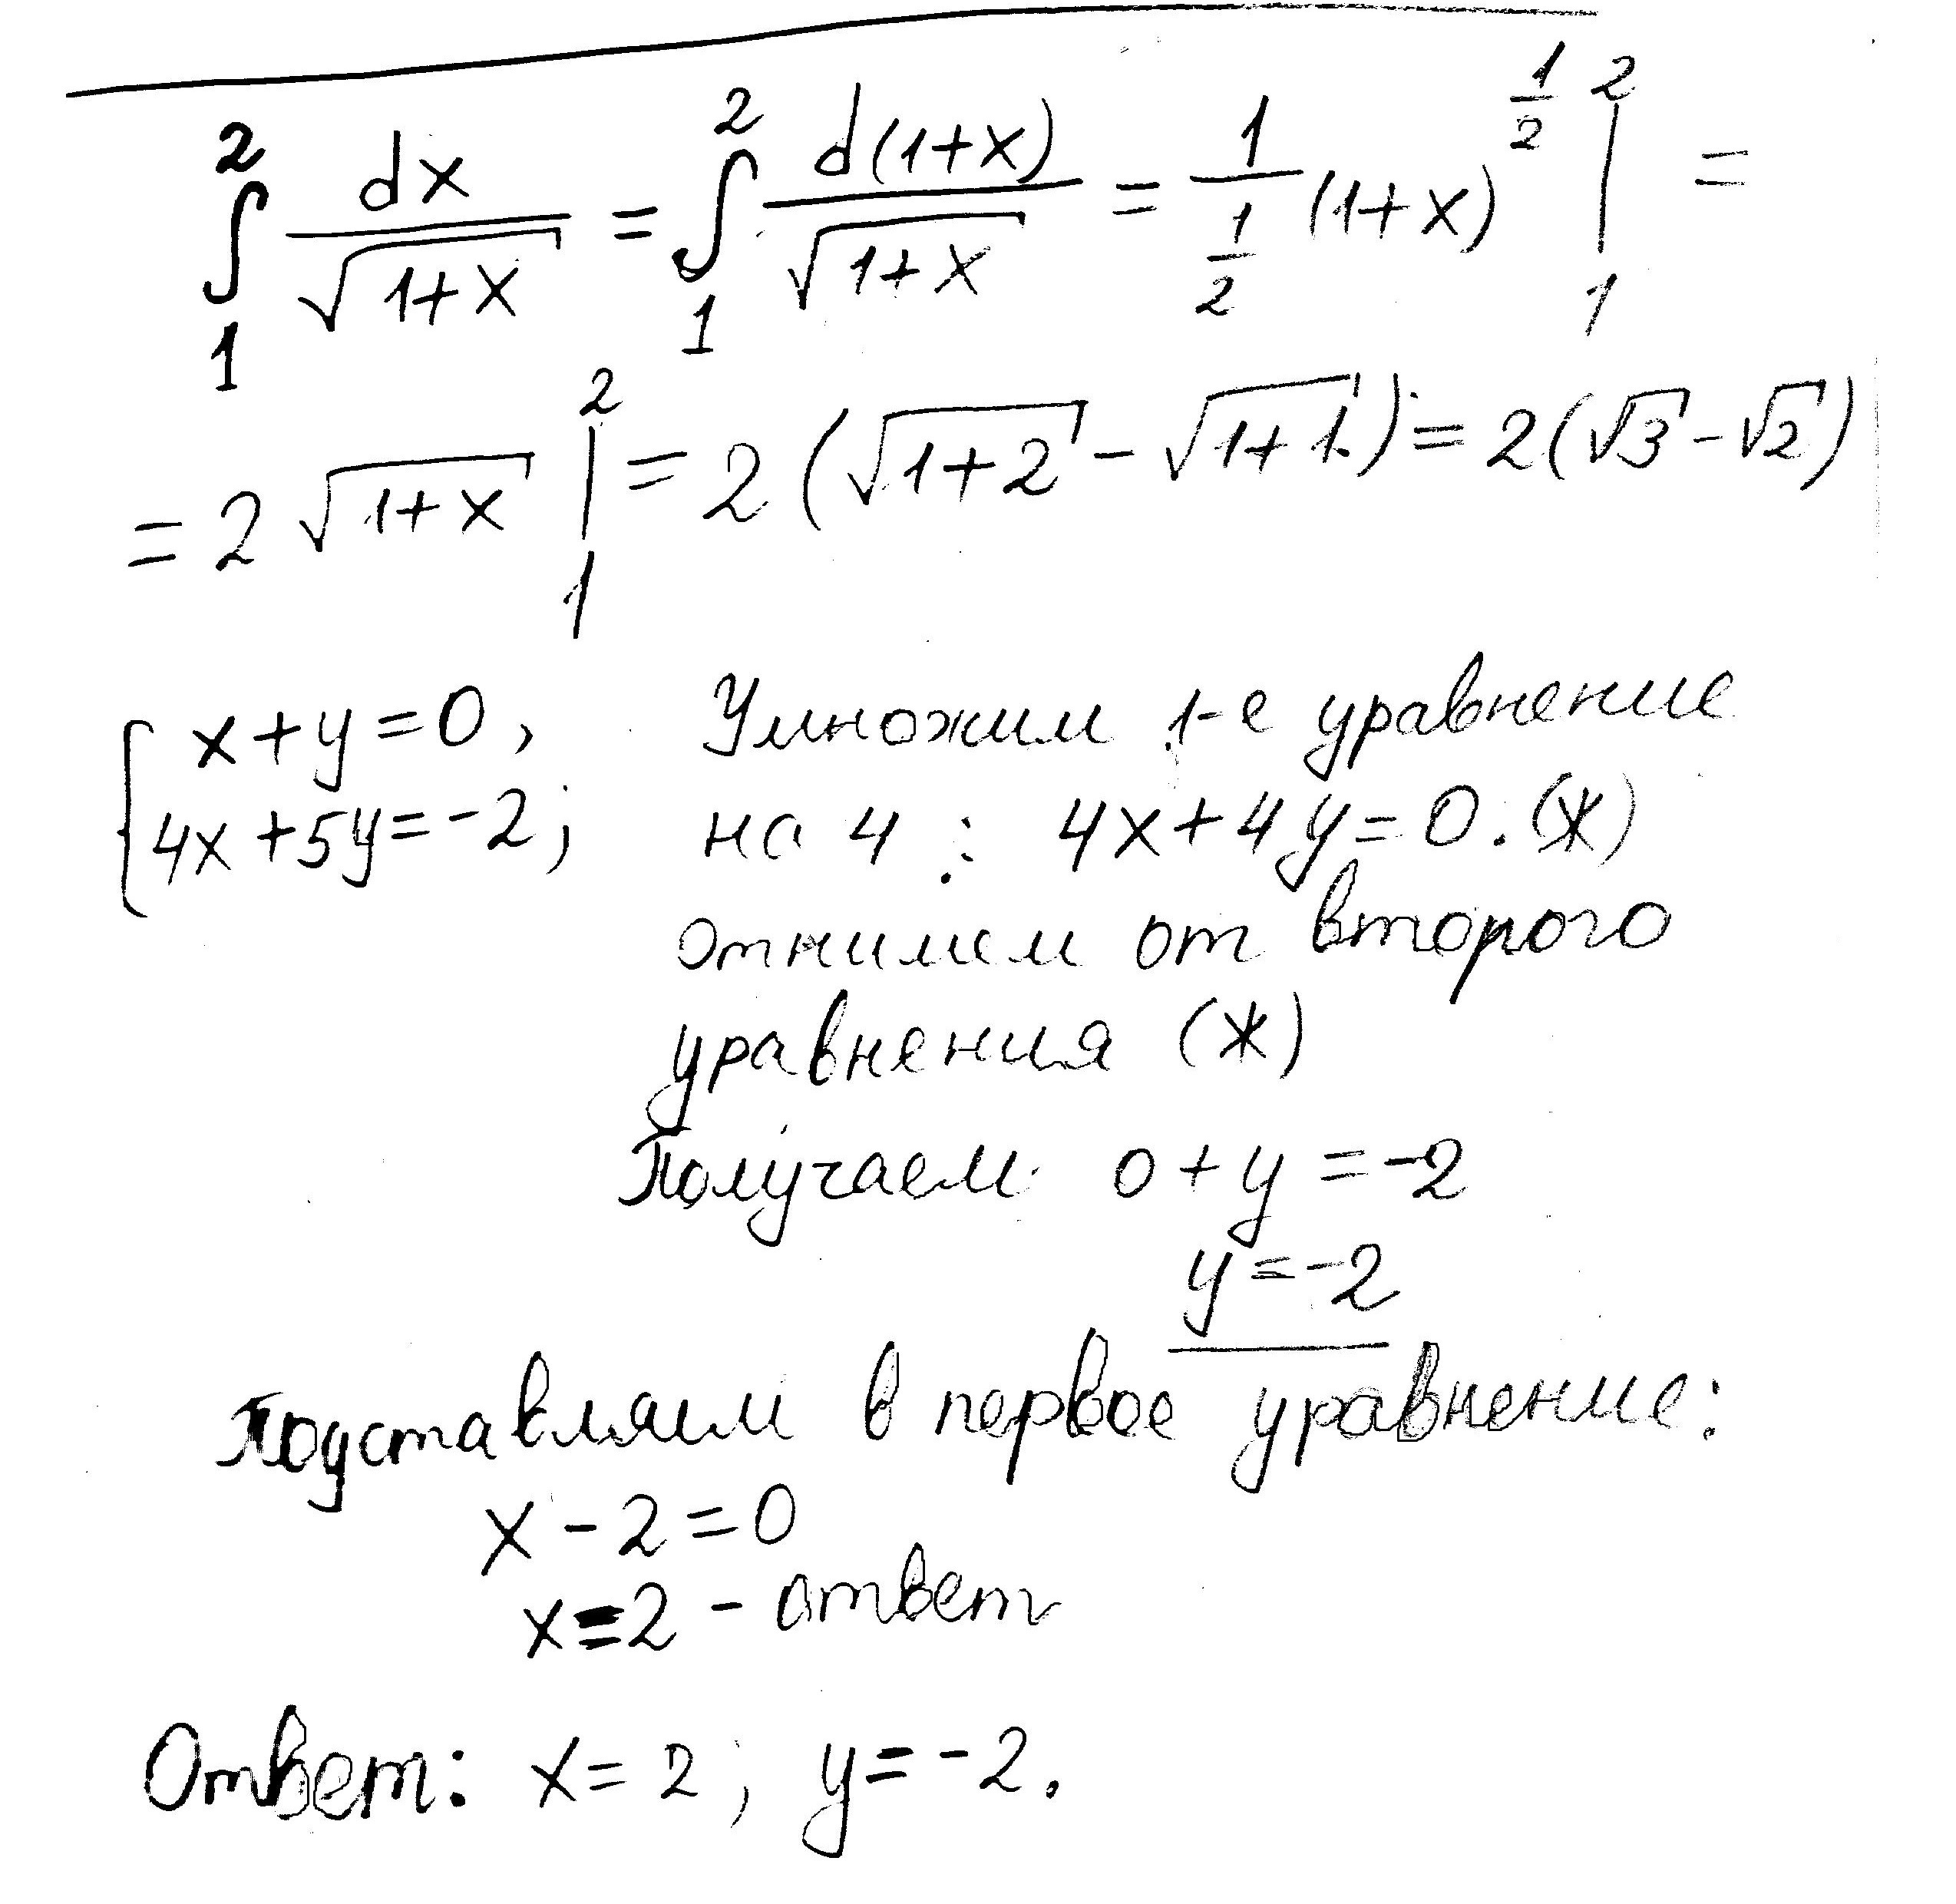 ∫₁² dx/√(1+x) = ∫₁² d(1+x)/√(1+x) = 1/(1/2) (1+x)^(1/2) |₁² =
= 2√(1+x) |₁² = 2(√(1+2) - √(1+1)) = 2(√3 - √2)
{ x+y=0, Умножим 1-е уравнение
4x+5y=-2; на 4: 4x+4y=0. (ж)
Отнимем от второго
уравнения (ж)
Получаем 0+y=-2
y=-2
Подставляем в первое уравнение:
x-2=0
x=2 - ответ
Ответ: x=2; y=-2.